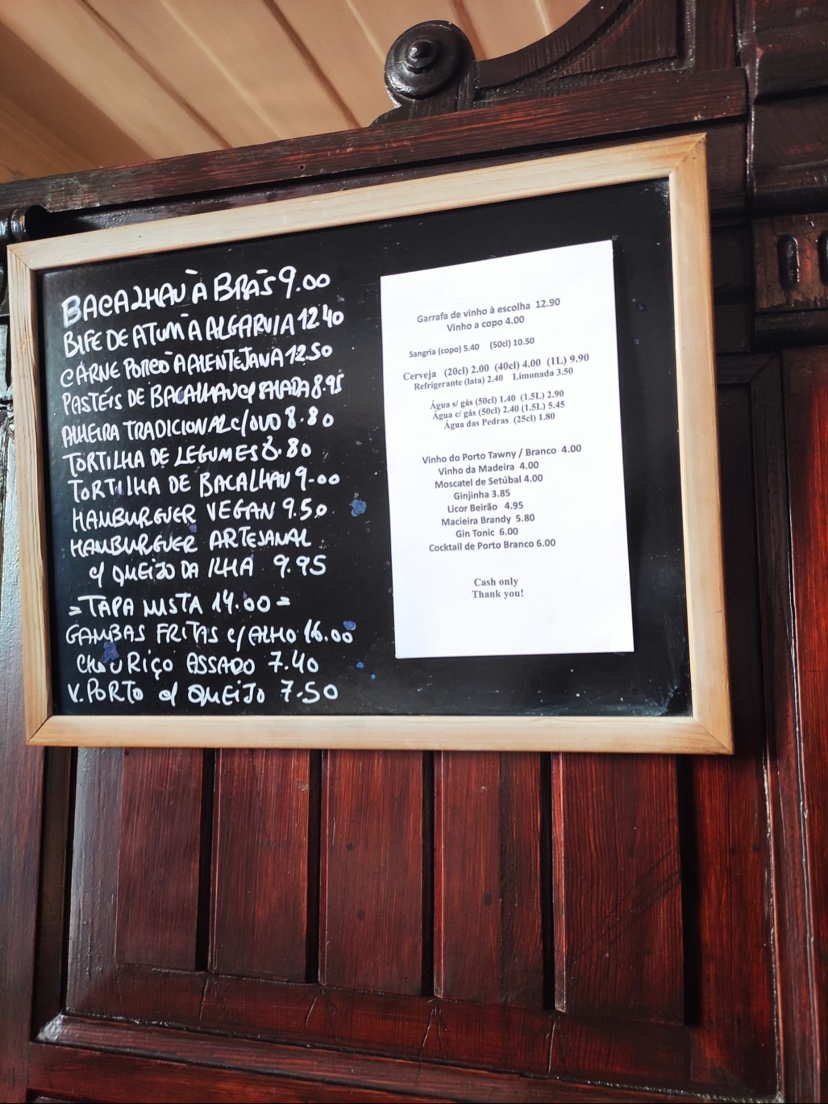 BACALHAU À BRÁS 9.00
BIFE DE ATUM À ALGARVIA 12.40
CARNE PORCO À ALENTEJANA 12.50
PASTÉIS DE BACALHAU C/ SALADA 8.95
ALHEIRA TRADICIONAL C/OVO 8.80
TORTILHA DE LEGUMES 8.80
TORTILHA DE BACALHAU 9.00
HAMBURGUER VEGAN 9.50
HAMBURGUER ARTESANAL
C/ QUEIJO DA ILHA 9.95
= TAPA MISTA 14.00 =
GAMBAS FRITAS C/ALHO 16.00
CHOURIÇO ASSADO 7.40
V. PORTO C/ QUEIJO 7.50
Garrafa de vinho à escolha 12.90
Vinho a copo 4.00
Sangria (copo) 5.40 (50cl) 10.50
Cerveja (20cl) 2.00 (40cl) 4.00 (1L) 9.90
Refrigerante (lata) 2.40 Limonada 3.50
Água s/ gás (50cl) 1.40 (1.5L) 2.90
Água c/ gás (50cl) 2.40 (1.5L) 5.45
Água das Pedras (25cl) 1.80
Vinho do Porto Tawny / Branco 4.00
Vinho da Madeira 4.00
Moscatel de Setúbal 4.00
Ginjinha 3.85
Licor Beirão 4.95
Macieira Brandy 5.80
Gin Tonic 6.00
Cocktail de Porto Branco 6.00
Cash only
Thank you!